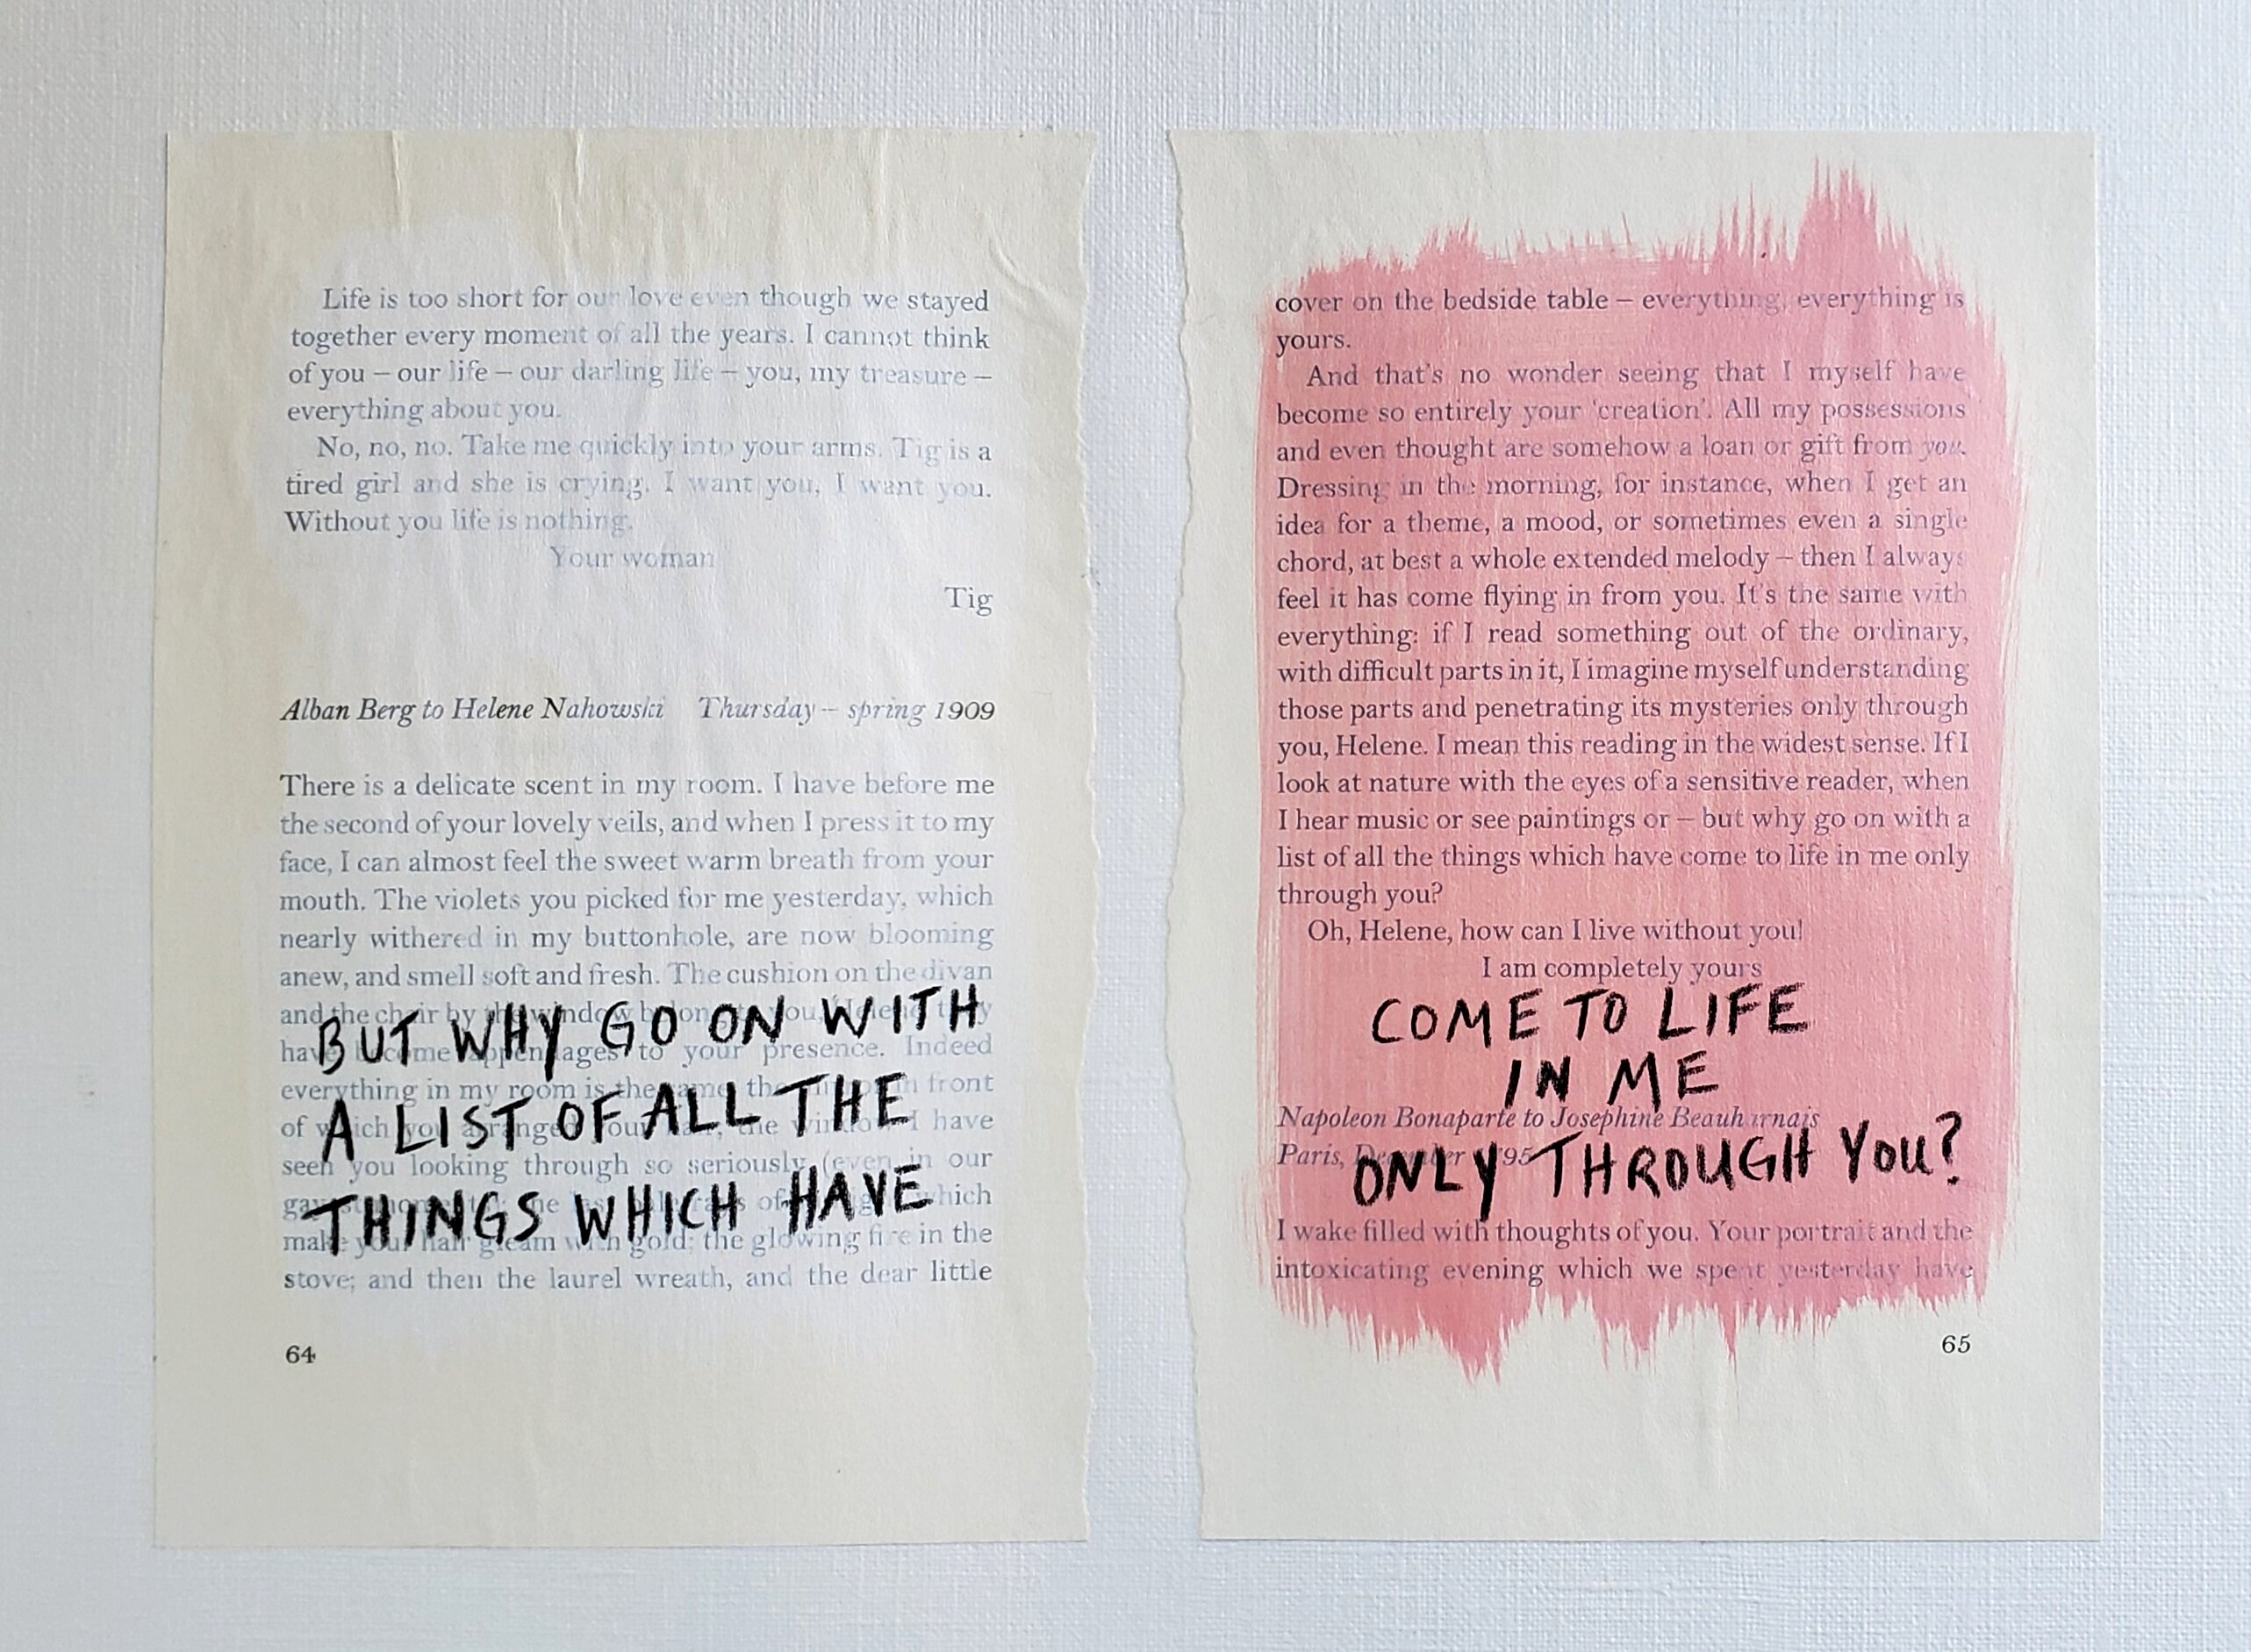 Life is too short for our love even though we stayed
together every moment of all the years. I cannot think
of you – our life – our darling life – you, my treasure –
everything about you.
No, no, no. Take me quickly into your arms. Tig is a
tired girl and she is crying. I want you, I want you.
Without you life is nothing.
Your woman
Tig
Alban Berg to Helene Nahowski Thursday – spring 1909
There is a delicate scent in my room. I have before me
the second of your lovely veils, and when I press it to my
face, I can almost feel the sweet warm breath from your
mouth. The violets you picked for me yesterday, which
nearly withered in my buttonhole, are now blooming
anew, and smell soft and fresh. The cushion on the divan
and the chair by the window
BUT WHY GO ON WITH
have become appendages to your presence. Indeed
everything in my room is the same, in front
A LIST OF ALL THE
of which you arranged your the I have
seen you looking through so seriously (even in our
THINGS WHICH HAVE
of which
make your hair gleam with gold; the glowing fire in the
stove; and then the laurel wreath, and the dear little
64
cover on the bedside table – everything, everything is
yours.
And that's no wonder seeing that I myself have
become so entirely your 'creation'. All my possessions
and even thought are somehow a loan or gift from you.
Dressing in the morning, for instance, when I get an
idea for a theme, a mood, or sometimes even a single
chord, at best a whole extended melody – then I always
feel it has come flying in from you. It's the same with
everything: if I read something out of the ordinary,
with difficult parts in it, I imagine myself understanding
those parts and penetrating its mysteries only through
you, Helene. I mean this reading in the widest sense. If I
look at nature with the eyes of a sensitive reader, when
I hear music or see paintings or – but why go on with a
list of all the things which have come to life in me only
through you?
Oh, Helene, how can I live without you!
I am completely yours
COME TO LIFE
IN ME
Napoleon Bonaparte to Josephine Beauharnais
Paris, December
ONLY THROUGH YOU?
I wake filled with thoughts of you. Your portrait and the
intoxicating evening which we spent yesterday have
65